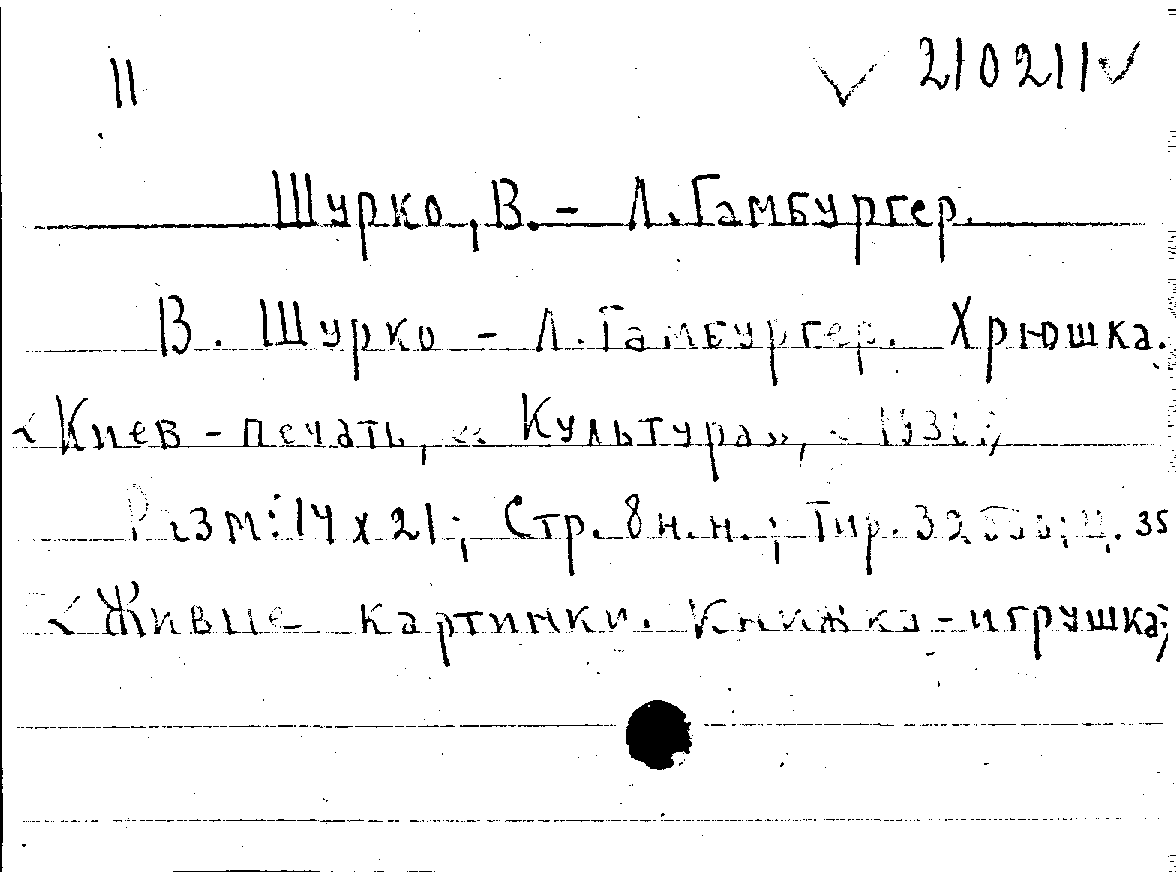 11 210211
Шурко, В. - Л. Гамбургер.
В. Шурко - Л. Гамбургер. Хрюшка.
Киев-печать, «Культура»,
Разм: 14 х 21; Стр. 8 н.н.; Тир. ц. 35
Живые картинки. Книжка-игрушка;